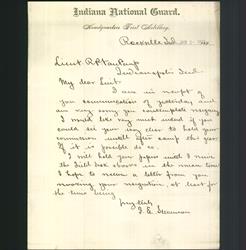 Indiana National Guard.
Headquarters First Artillery.
Rockville Ind
Lieut R P Van Camp
Indianapolis Ind
My dear Lieut.
I am in receipt of
your communication of yesterday and
am very sorry you contemplate resigning
I would like very much indeed if you
could see your way clear to hold your
commission until after camp this year
if it is possible do so.
I will hold your papers until I hear
the
I hope to receive a letter from you
your resignation, at least for
the time being
yours truly